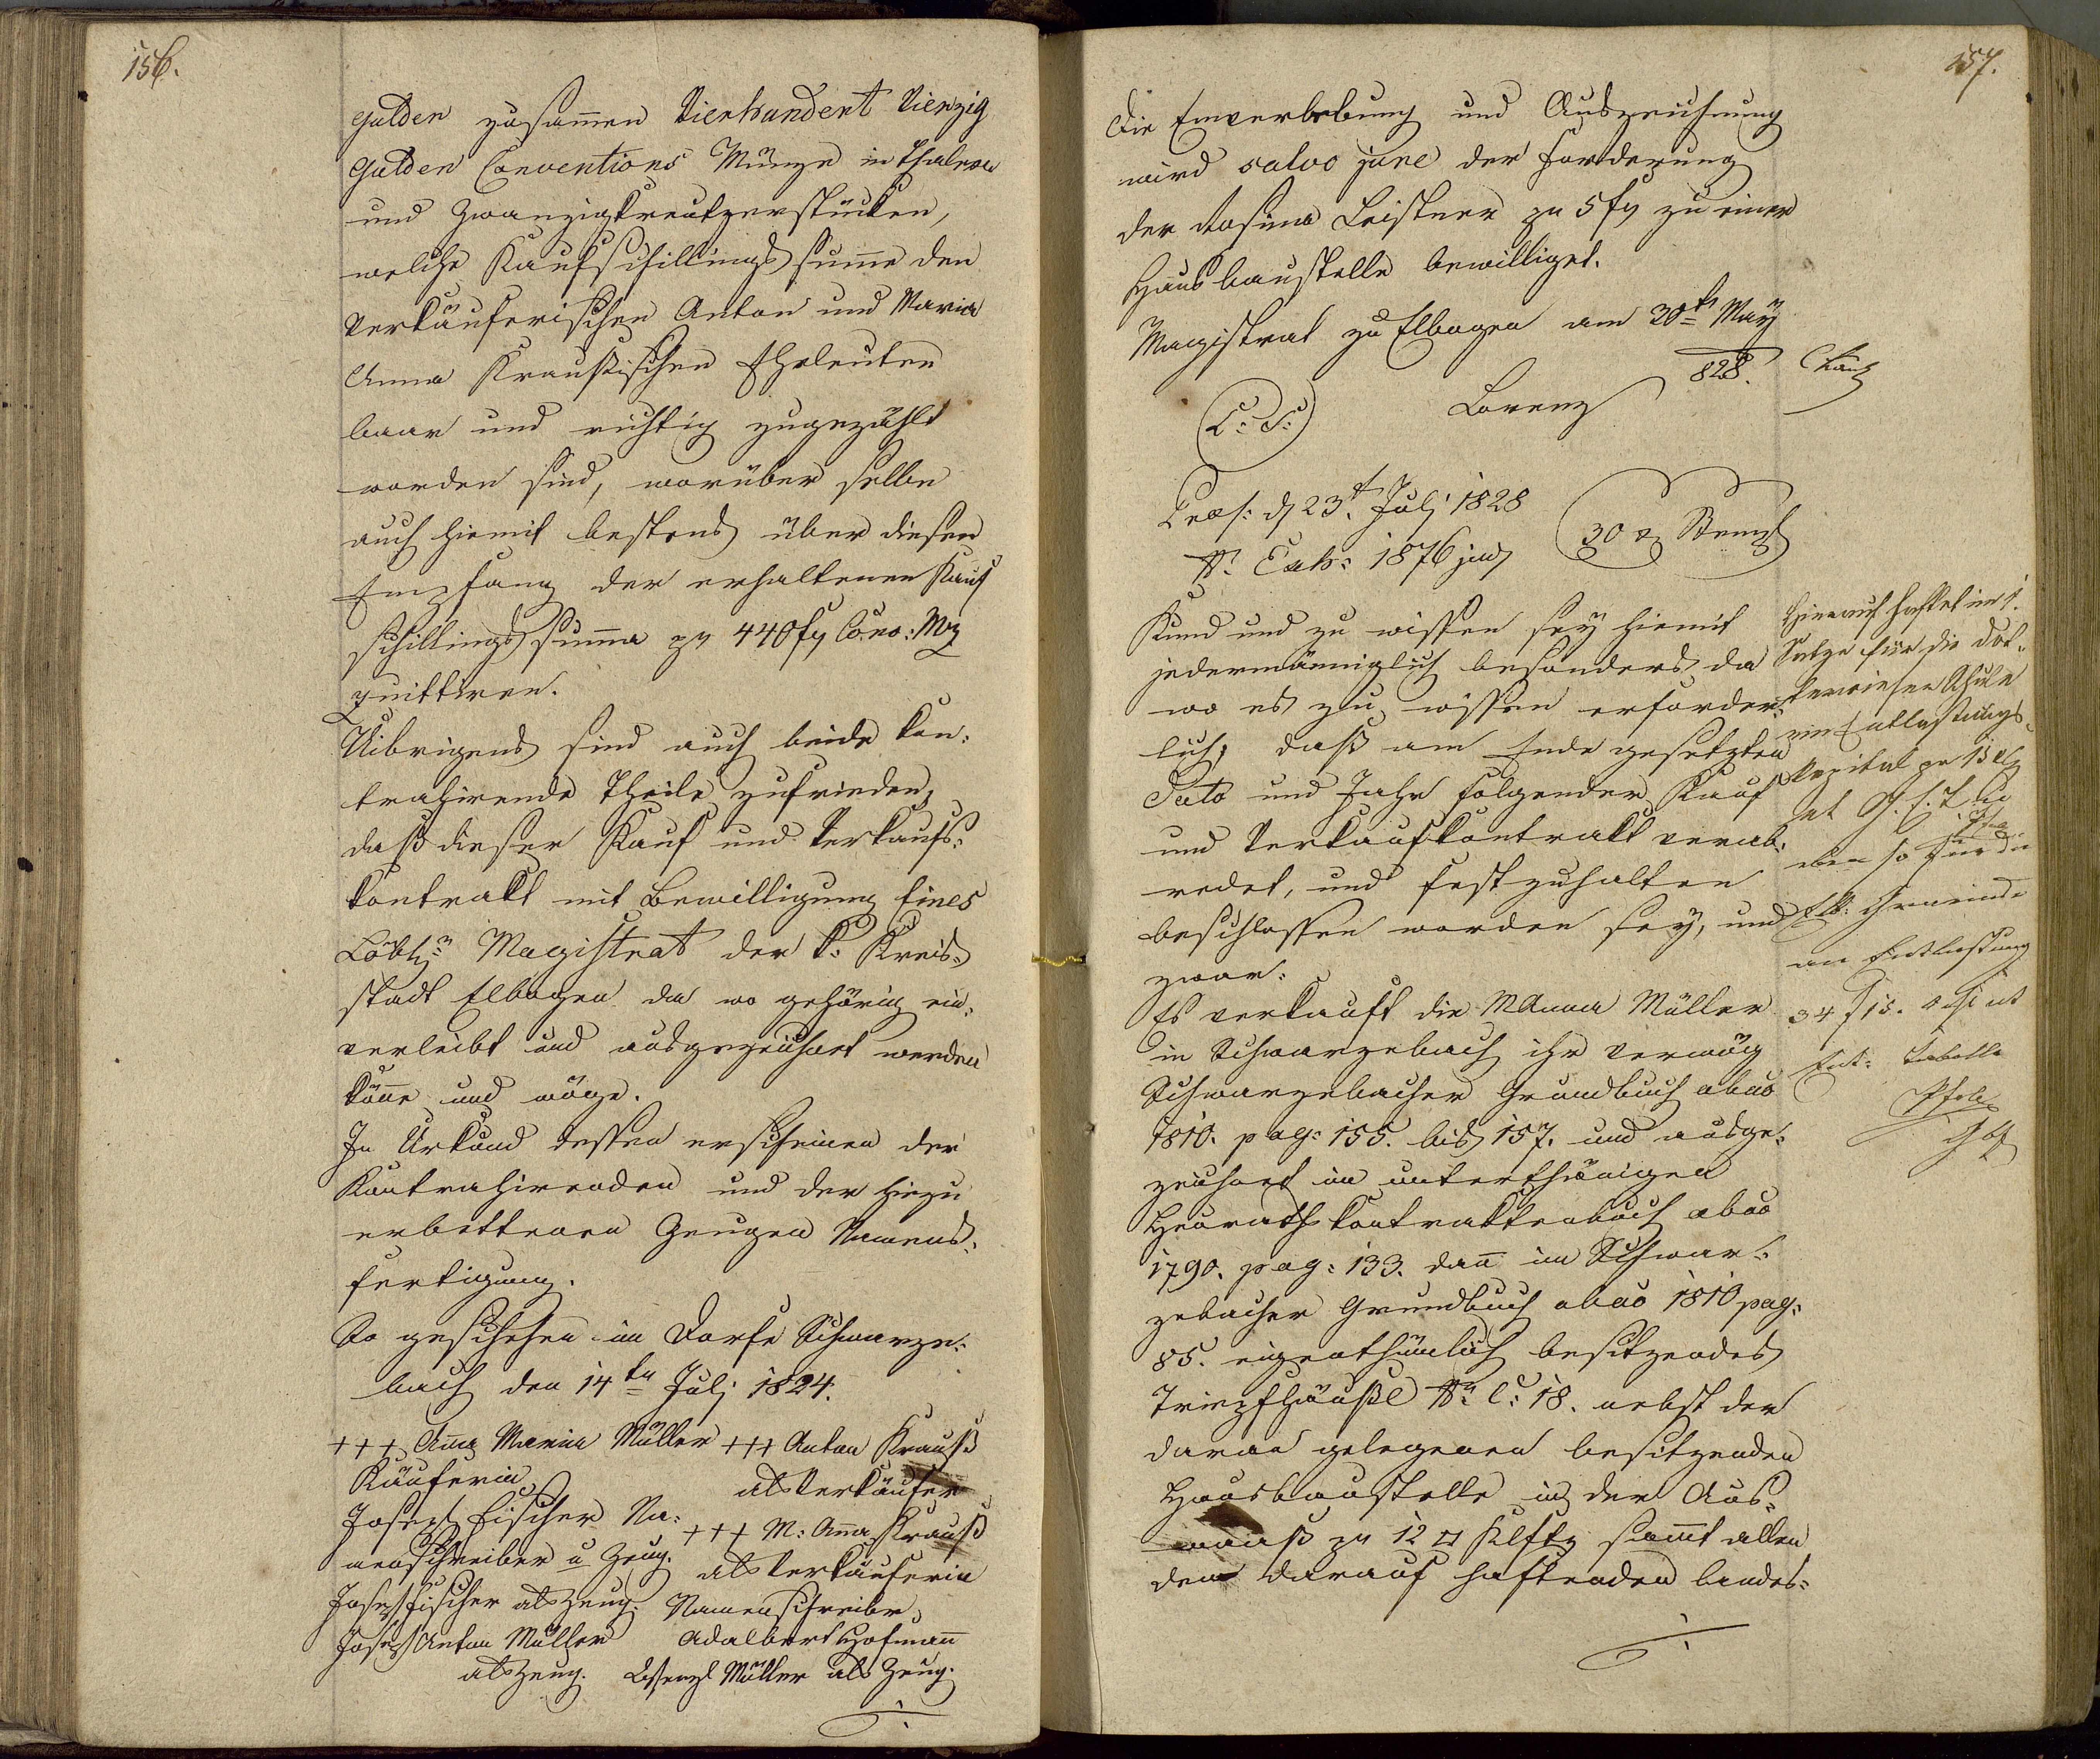 156.
Gulden zusam̄en Vierhundert Vierzig
Gulden Conventions Münze in Thalern
und Zwanzigkreutzerstücken,
welche Kaufschillings sum̄e den
Verkäuferischen Anton und Maria
Anna Kraußischen Eheleuten
baar und richtig zugezählt
worden sind, worüber selbe
auch hiemit bestens über diesen
Empfang der erhaltenen Kauf
schillings sum̄a pr 440 f Conv: Mz
quittiren.
Uibrigens sind auch beide kon:
trahirende Theile zufrieden,
daß dieser Kauf und Verkaufs:
kontrakt mit Bewilligung Eines
Löbl: Magistrat der k: Kreis:
stadt Elbogen da wo gehörig ein:
verleibt und ausgezeichnet werden
kön̄e und möge.
In Urkund dessen erscheinen der
Kontrahirenden und der hiezu
erbettenen Zeugen Namens:
fertigung.
So geschehen im Dorfe Schwarze:
bach den 14ten Julj 1824.
+++ An̄a Maria Müller +++ Anton Krauß
Käuferin als Verkäufer
Joseph Fischer Na: +++ M: An̄a Krauß
menschreiber u Zeug. als Verkäuferin
Joseph Fischer als Zeug. Namenschreiber
Joseph Anton Müller Adalbert Hofman̄
als Zeug. Wenzl Müller als Zeug.
157.
Die Einverleibung und Auszeichnung
wird salvo jure der Forderung
der Rosina Leistner pr 5 f zu einer
Hausbaustelle bewilliget.
Magistrat zu Elbogen am 30t May
828.
L: S: Lorenz
Praes: d 23t Julj 1828
N: Exh: 1876 jud 30 x Stempl
Kund und zu wissen sey hiemit
jedermänniglich besonders da
wo es zu wissen erforder:
lich, daß am Ende gesetzten
Dato und Jahr folgender Kauf
und Verkaufkontrakt verab:
redet, und festzuhalten
beschlossen worden sey, und
zwar:
Es verkauft die MAnna Müller
in Schwarzebach ihr vermög
Schwarzebacher Grundbuch abao
1810. pag: 155. bis 157. und ausge:
zeichnet im unterthänigen
Heuraths kontraktenbuch abao
1790. pag: 133. dan̄ im Schwar:
zebacher Grundbuch abao 1810 pag:
85. eigenthümlich besitzendes
Tripfhäußl N: C: 18. nebst der
daran gelegenen besitzenden
Hausbaustelle in der Aus:
maaß pr 12 □ Klftr sam̄t allen
den darauf haftenden landes:
Hierauf haftet im 1.
Satze für die Dot:
terwieser Schule
ein Entlastungs:
kapital pr
eben so für die
Elb: Gemeinde
an Entlastung
34 f 15.
Ent: Tabelle